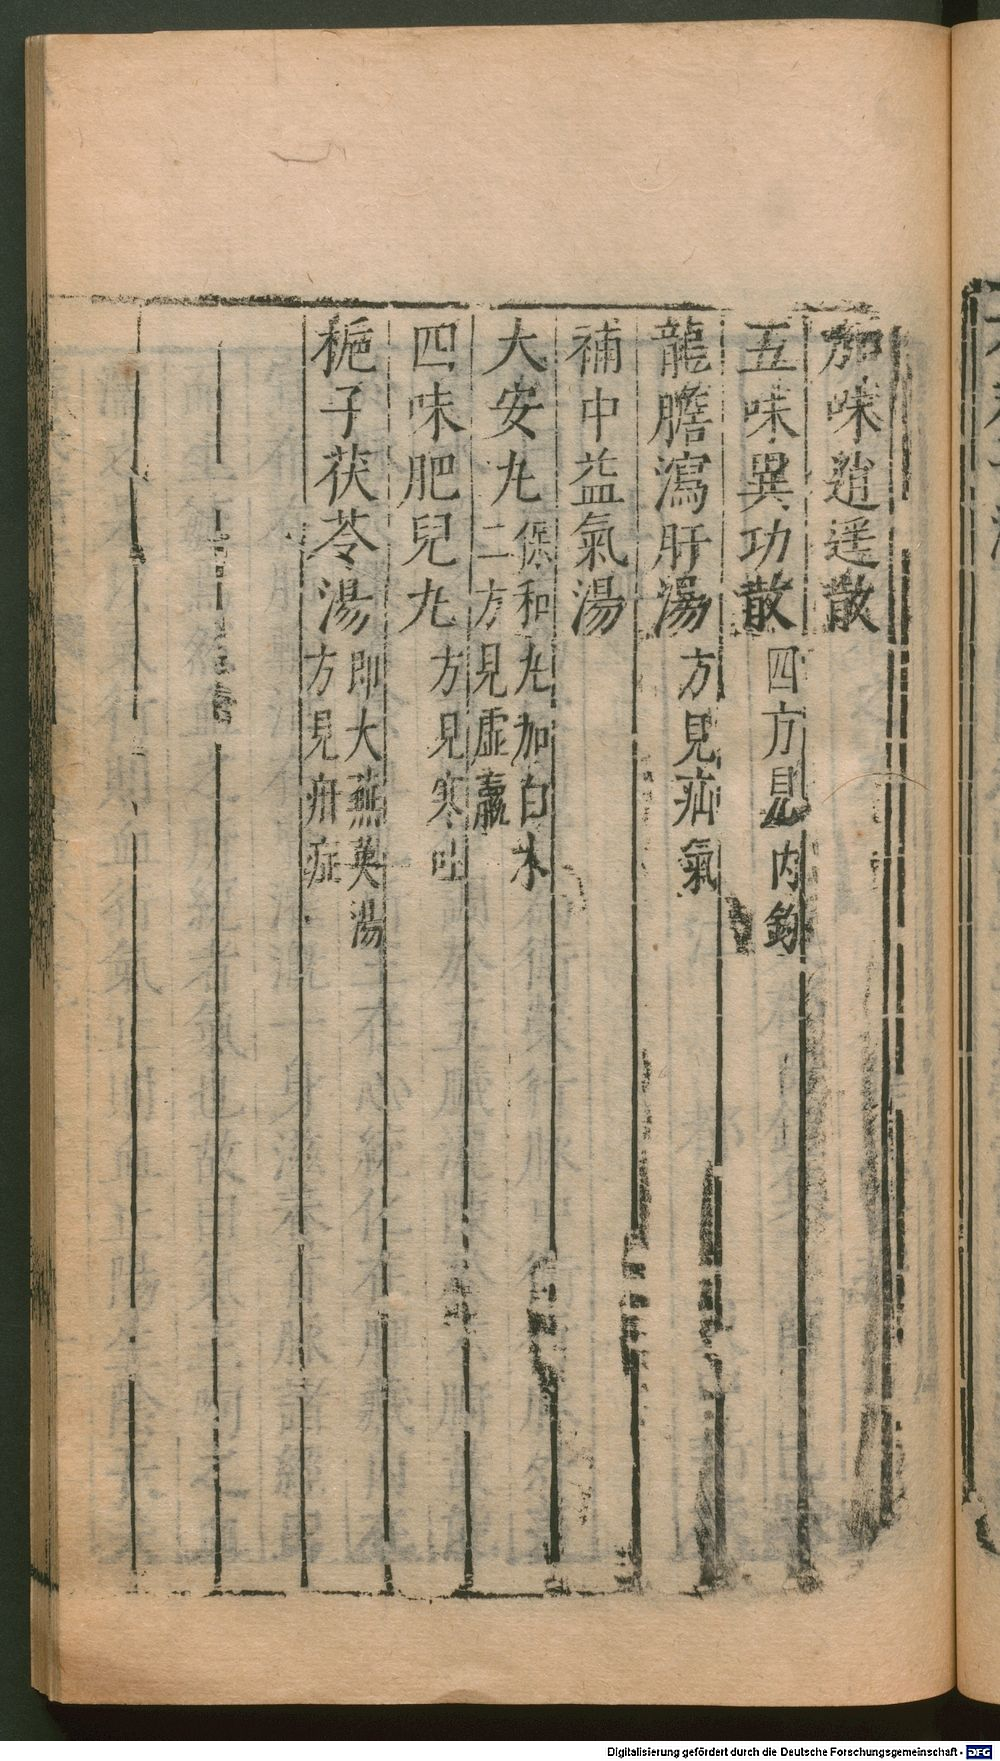 加味逍遥散
五味異功散 四方見內釣
龍膽瀉肝湯 方見疝氣
補中益氣湯
大安丸 保和丸加白朮
二方見虛羸
四味肥兒丸 方見寒吐
梔子茯苓湯 即大蕪荑湯
方見疳症
Digitalisierung gefördert durch die Deutsche Forschungsgemeinschaft - DFG